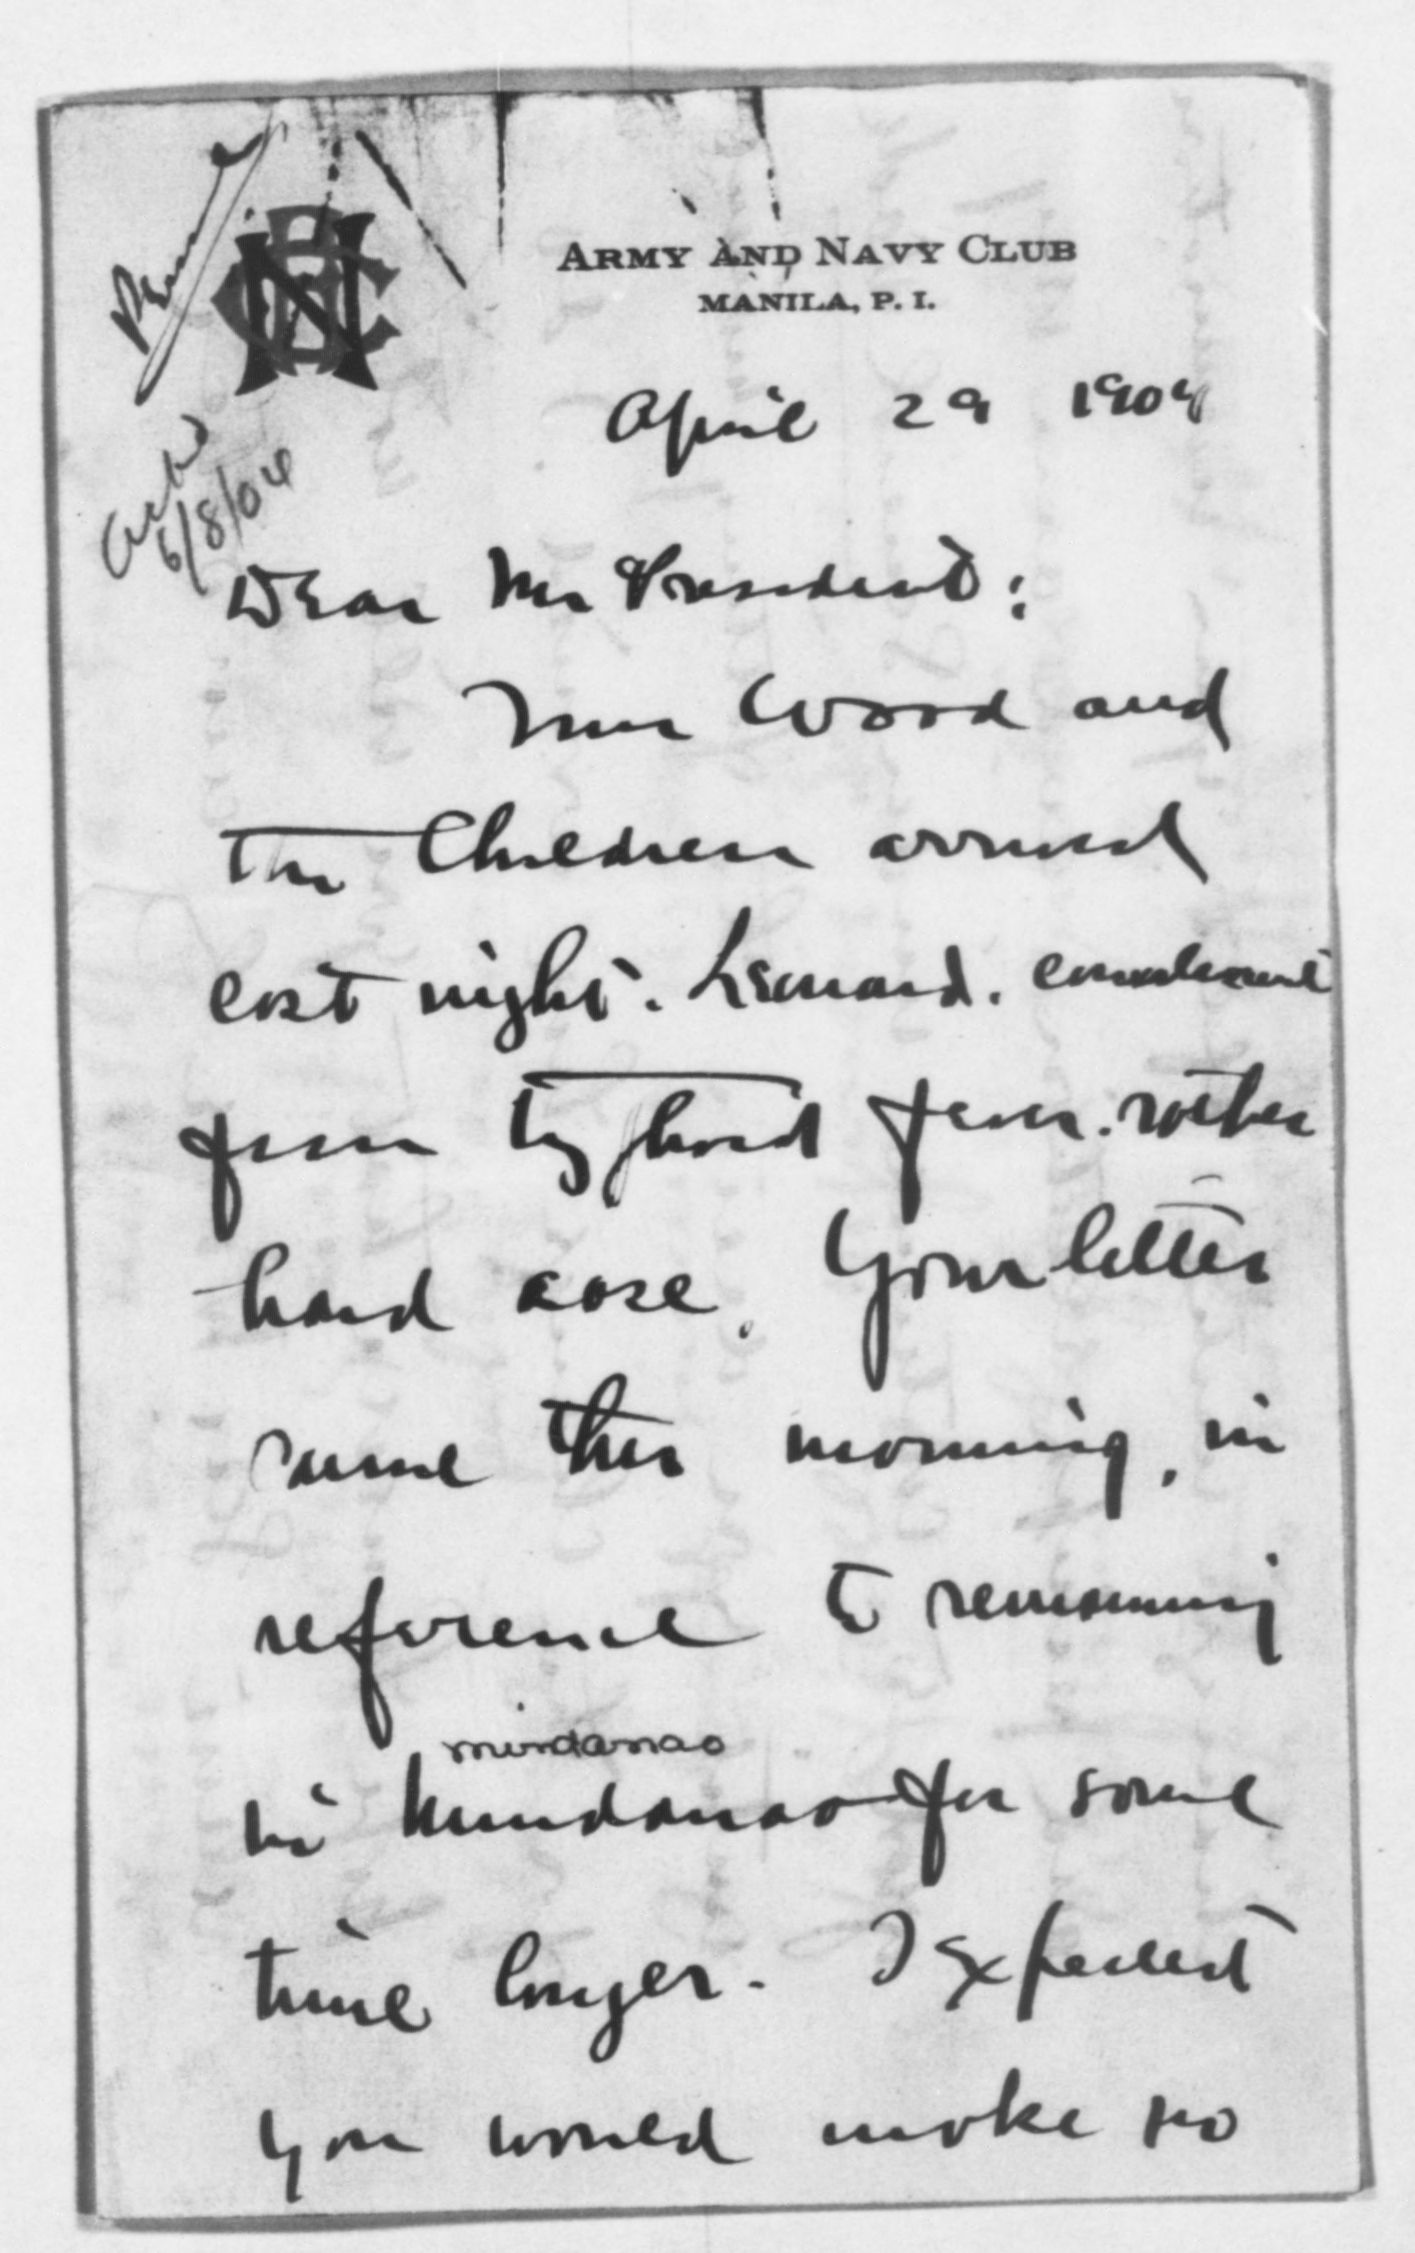 Personal
Army and Navy Club
Manila, P. I.
April 29 1904
Ackd
6/8/04
Dear Mr President:
Mrs Wood and
the Children arrived
last night. Leonard. convalescent
from typhoid fever. rather
hard case. Your letter
came this morning, in
reference to remaining
mindanao
in Mindanao for some
time longer. I expected
you would make no